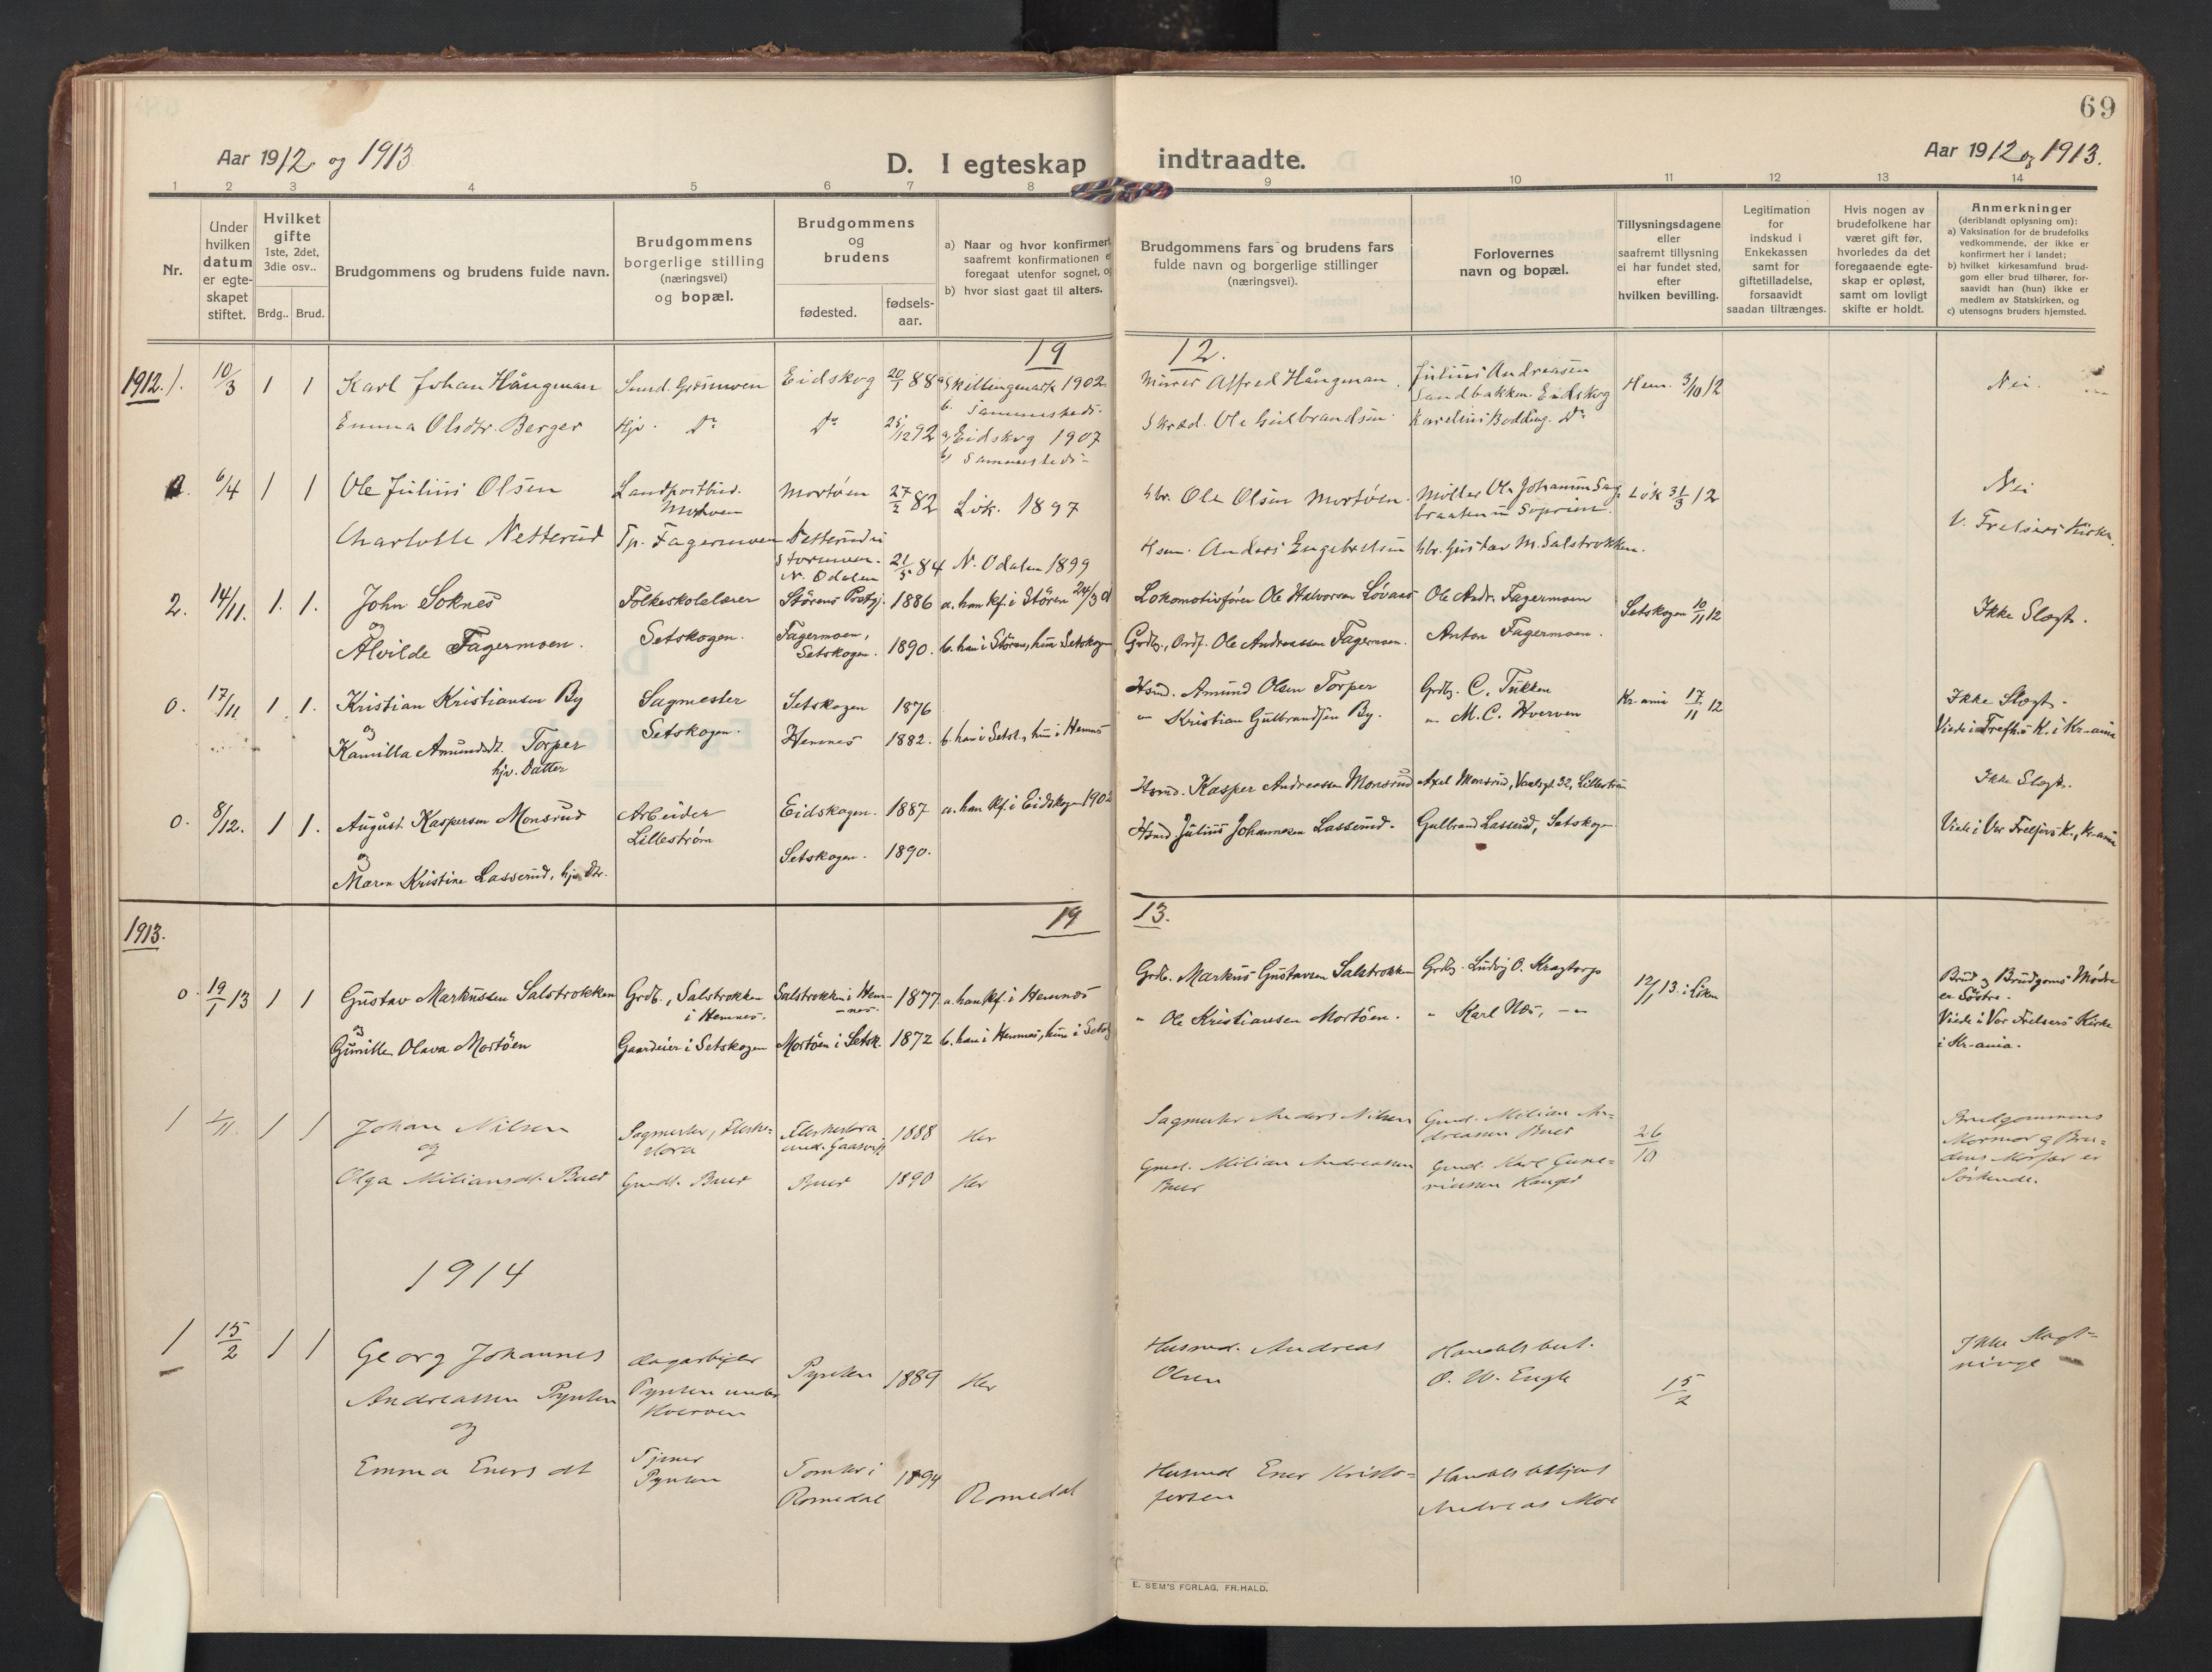 69
Aar 1912 og 1913
D. I egteskap indtraadte.
Aar 1912 og 1913.
1 2 3 4 5 6 7 8 9 10 11 12 13 14
Nr.
Under hvilken datum er egteskapet stiftet.
Hvilket gifte 1ste, 2det, 3die osv..
Brdg.. Brud.
Brudgommens og brudens fulde navn.
Brudgommens borgerlige stilling (næringsvei) og bopæl.
Brudgommens og brudens
fødested.
fødsels-aar.
a) Naar og hvor konfirmert saafremt konfirmationen foregaat utenfor sognet,
b) hvor sidst gaat til alters.
Brudgommens fars og brudens fars fulde navn og borgerlige stillinger (næringsvei).
Forlovernes navn og bopæl.
Tillysningsdagene eller saafremt tillysning ei har fundet sted, efter hvilken bevilling.
Legitimation for indskud i Enkekassen samt for giftetilladelse, forsaavidt saadan tiltrænges.
Hvis nogen av brudefolkene har været gift før, hvorledes da det foregaaende egteskap er opløst, samt om lovligt skifte er holdt.
Anmerkninger
(deriblandt oplysning om):
a) Vaksination for de brudefolks vedkommende, der ikke er konfirmert her i landet;
b) hvilket kirkesamfund brudgom eller brud tilhører, forsaavidt han (hun) ikke er medlem av Statskirken, og
c) utensogns bruders hjemsted.
1912.
1912. 1. 10/3 1 1 Karl Johan Hångman
Eidskog 20/1 88 a) Skillingmark 1902
b. Sammesteds.
Murer Alfred Hångman.
Julius Andreasen Sandbakken Eidskog
Hem. 3/10 12
Nei.
Emma Olsdtr. Berger
Hjv. Do
Do 25/12 92 a) Eidskog 1907
b) Sammesteds
Skræd. Ole Gulbrandsen
Karelius Bodding. Do
6/4 1 1 Ole Julius Olsen
Landpostbud.
Mortøen 27/2 82 Løk. 1897
Gbr. Ole Olsen Mortøen.
Løk 31/3 12
Nei
V. Frelsers Kirke.
Charlotte Netterud
Tp. Fagermoen
Netterud
Stormoen.
N. Odalen 21/5 84 N. Odalen 1899
Hsm. Anders Engebretsen
Gbr. Gustav M. Salstrokken.
2. 14/11. 1. 1. John Soknes
og
Alvilde Fagermoen.
Folkeskolelærer
Setskogen.
Störens Prstgj. 1886 a. han kf. i Stören
Fagermoen, Setskogen. 1890. b. han i Stören, hun i Setskogen
Lokomotivfører Ole Halvorsen Løvaas
Grdbr., Ordf. Ole Andreassen Fagermoen.
Ole Andr. Fagermoen
Anton Fagermoen.
Setskogen 10/11 12
Ikke Slegt.
0. 17/11 1 1. Kristian Kristiansen By
og
Kamilla Amundsdt. Torper
hjv. Datter
Sagmester
Setskogen.
Setskogen 1876
Hemnes 1882. b. han i Setsk., hun i Hemnes
Hsmd. Amund Olsen Torper
Kristian Gulbrandsen By.
Grdbr. C. Tukken
M. C. Hverven
Kr-ania 17/11 12
Ikke Slegt.
Viede i Trefh.s K. i Kr-ania
0. 8/12. 1 1. August Kaspersen Monsrud
og
Maren Kristine Lasserud, hjv. Dtr.
Arbeider
Lillestrøm
Eidskogen. 1887 a. han kf. i Eidskogen 1902
Setskogen. 1890.
Hsmd. Kasper Andreassen Monsrud
Hsmd Julius Johannesen Lasserud.
Axel Monsrud, 32, Lillestrøm
Gulbrand Lasserud, Setskogen
Ikke Slegt.
Viede i Vor Frelsers K., Kr-ania
1913. 1913.
0. 19/1 13 1 1 Gustav Markussen Salstrokken
og
Gunille Olava Mortöen
Grdb., Salstrokken
i Hemnes.
Gaardeier i Setskogen
Salstrokken i Hemnes. 1877. a. han kf. i Hemnes
Mortöen i Setsk. 1872 b. han i Hemnes, hun i Setsk
Grdb. Markus Gustavsen Salstrokken
" Ole Kristiansen Mortöen.
Grdbr. Ludvig O. Kragtorp
" Karl Næs, - " -
12/1 13. i Löken
Brud og Brudgoms Mödre er Söstre.
Viede i Vor Frelsers Kirke i Kr-ania.
1 1/11. 1 1 Johan Nilsen
og
Olga Miliansdt. Buer
Sagmester,
Gmdt. Buer
1888 Her
Buer 1890 Her
Sagmester Anders Nilsen
Gmd. Milian Andreassen Buer
Gmd. Milian Andreassen Buer
Gmd. Karl
26/10
Brudgommens Mormor og Brudens Morfar er Söskende.
1914
1 15/2 1 1 Georg Johannes
Andreassen Pynten
og
Emma Enersdt
dagarbeider
Pynten under
Hverven
Tjener
Pynten
Pynten 1889 Her
Tomter i
Romedal 1894 Romedal
Husmd. Andreas
Olsen
Husmd Ener Kristofersen
Handelsbest.
O. W. Engh
Handelsbetjent
Andreas Moe
15/2
Ikke Slegtninge
E. SEM'S FORLAG, FR.HALD.